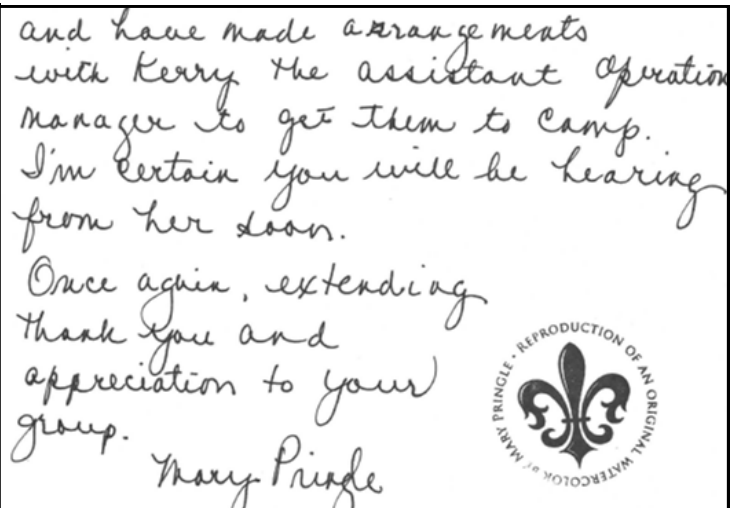 and have made arrangements
with Kerry the assistant Operation
manager to get them to camp.
I'm certain you will be hearing
from her soon.
Once again, extending
thank you and
appreciation to your
group.
Mary Pringle
MARY PRINGLE • REPRODUCTION OF AN ORIGINAL WATERCOLOR by